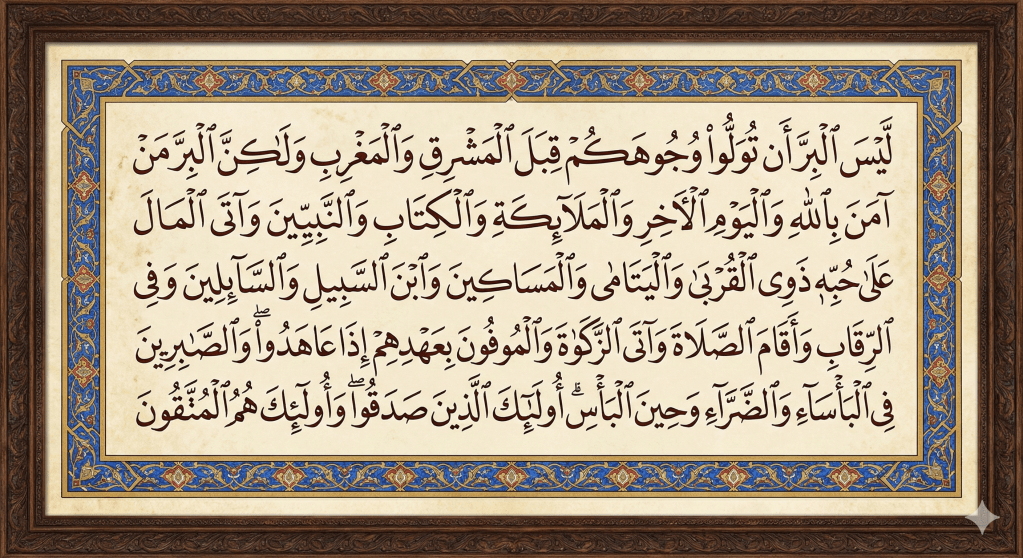 لَّيْسَ ٱلْبِرَّ أَن تُوَلُّوا۟ وُجُوهَكُمْ قِبَلَ ٱلْمَشْرِقِ وَٱلْمَغْرِبِ وَلَٰكِنَّ ٱلْبِرَّ مَنْ
آمَنَ بِٱللَّهِ وَٱلْيَوْمِ ٱلْأَخِرِ وَٱلْمَلَآئِكَةِ وَٱلْكِتَابِ وَٱلنَّبِيِّينَ وَآتَى ٱلْمَالَ
عَلَىٰ حُبِّهِۦ ذَوِى ٱلْقُرْبَىٰ وَٱلْيَتَامَىٰ وَٱلْمَسَاكِينَ وَٱبْنَ ٱلسَّبِيلِ وَٱلسَّآئِلِينَ وَفِى
ٱلرِّقَابِ وَأَقَامَ ٱلصَّلَاةَ وَآتَى ٱلزَّكَوٰةَ وَٱلْمُوفُونَ بِعَهْدِهِمْ إِذَا عَاهَدُوا۟ ۖ وَٱلصَّٰبِرِينَ
فِى ٱلْبَأْسَاءِ وَٱلضَّرَّآءِ وَحِينَ ٱلْبَأْسِ ۗ أُولَٰٓئِكَ ٱلَّذِينَ صَدَقُوا۟ ۖ وَأُولَٰئِكَ هُمُ ٱلْمُتَّقُونَ